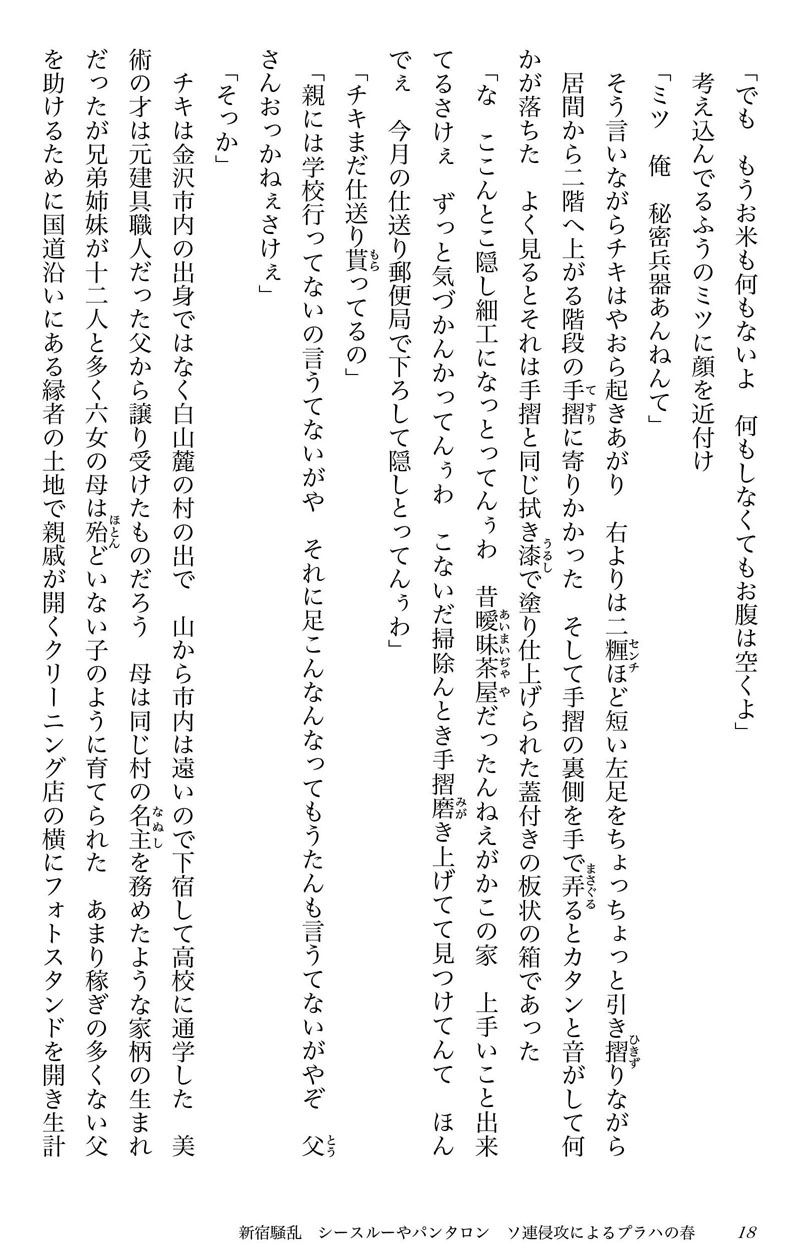 「でも　もうお米も何もないよ　何もしなくてもお腹は空くよ」
考え込んでるふうのミツに顔を近付け
「ミツ　俺　秘密兵器あんねんて」
そう言いながらチキはやおら起きあがり　右よりは二糎ほど短い左足をちょっちょっと引き摺りながら
居間から二階へ上がる階段の手摺に寄りかかった　そして手摺の裏側を手で弄るとカタンと音がして何
かが落ちた　よく見るとそれは手摺と同じ拭き漆で塗り仕上げられた蓋付きの板状の箱であった
「な　ここんとこ隠し細工になっとってんぅわ　昔曖昧茶屋だったんねえがかこの家　上手いこと出来
てるさけぇ　ずっと気づかんかってんぅわ　こないだ掃除んとき手摺磨き上げてて見つけてんて　ほん
でぇ　今月の仕送り郵便局で下ろして隠しとってんぅわ」
「チキまだ仕送り貰ってるの」
「親には学校行ってないの言うてないがや　それに足こんなんなってもうたんも言うてないがやぞ　父
さんおっかねぇさけぇ」
「そっか」
チキは金沢市内の出身ではなく白山麓の村の出で　山から市内は遠いので下宿して高校に通学した　美
術の才は元建具職人だった父から譲り受けたものだろう　母は同じ村の名主を務めたような家柄の生まれ
だったが兄弟姉妹が十二人と多く六女の母は殆どいない子のように育てられた　あまり稼ぎの多くない父
を助けるために国道沿いにある縁者の土地で親戚が開くクリーニング店の横にフォトスタンドを開き生計
新宿騒乱　シースルーやパンタロン　ソ連侵攻によるプラハの春　18